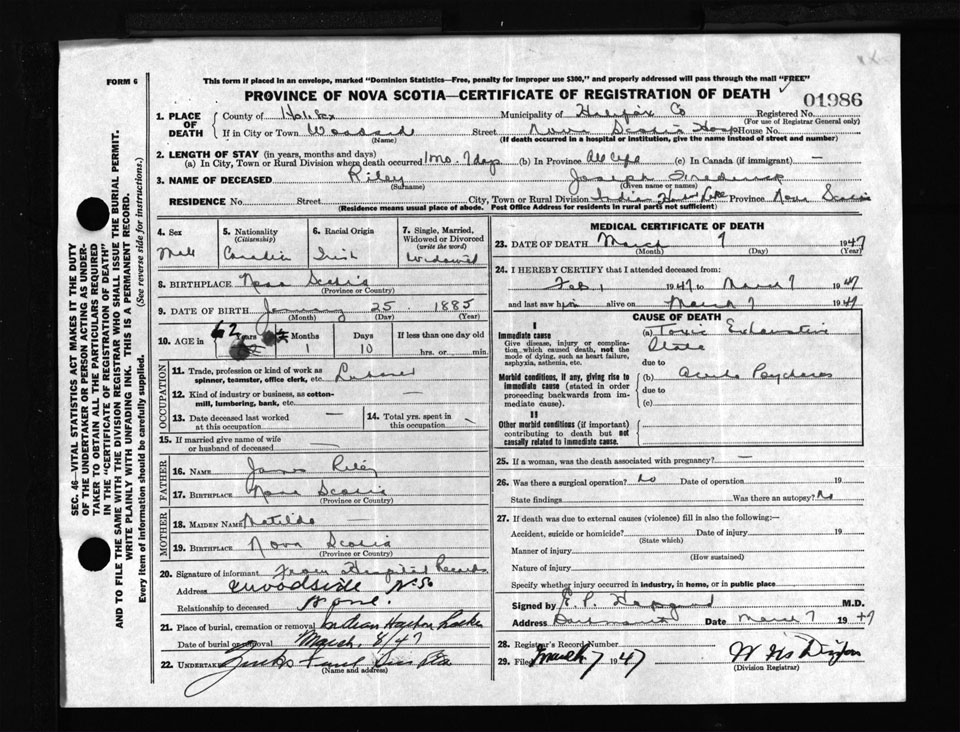 FORM 6
This form if placed in an envelope, marked "Dominion Statistics—Free, penalty for improper use $300," and properly addressed will pass through the mail "FREE"
PROVINCE OF NOVA SCOTIA—CERTIFICATE OF REGISTRATION OF DEATH
01986
1. PLACE OF DEATH
County of Halifax
Municipality of Halifax Co
Registered No.
(For use of Registrar General only)
If in City or Town Woodside
(Name)
Street Nova Scotia Hosp House No.
(If death occurred in a hospital or institution, give the name instead of street and number)
2. LENGTH OF STAY (in years, months and days)
(a) In City, Town or Rural Division where death occurred 1 mo. 7 days (b) In Province All life (c) In Canada (if immigrant) —
3. NAME OF DECEASED Riley Joseph Frederick
(Surname) (Given name or names)
RESIDENCE No. Street City, Town or Rural Division Indian Harbor Lake Province Nova Scotia
(Residence means usual place of abode. Post Office Address for residents in rural parts not sufficient)
4. Sex
Male
5. Nationality
(Citizenship)
Canadian
6. Racial Origin
Irish
7. Single, Married, Widowed or Divorced
(write the word)
Widowed
8. BIRTHPLACE Nova Scotia
(Province or Country)
9. DATE OF BIRTH January 25 1885
(Month) (Day) (Year)
10. AGE in 62 Months Days 10 If less than one day old
hrs. or min.
OCCUPATION
11. Trade, profession or kind of work as spinner, teamster, office clerk, etc.
12. Kind of industry or business, as cotton-mill, lumbering, bank, etc. —
13. Date deceased last worked at this occupation —
14. Total yrs. spent in this occupation —
15. If married give name of wife or husband of deceased
FATHER
16. NAME James Riley
17. BIRTHPLACE Nova Scotia
(Province or Country)
MOTHER
18. MAIDEN NAME Matilda —
19. BIRTHPLACE Nova Scotia
(Province or Country)
20. Signature of informant From Hospital Records
Address Woodside N.S.
Relationship to deceased None.
21. Place of burial, cremation or removal Indian Harbor Lake
Date of burial or removal March 8/47
22. UNDERTAKER
(Name and address)
MEDICAL CERTIFICATE OF DEATH
23. DATE OF DEATH March 7 1947
(Month) (Day) (Year)
24. I HEREBY CERTIFY that I attended deceased from:
Feb. 1 1947 to March 7 1947
and last saw him alive on March 7 1947
CAUSE OF DEATH
I
Immediate cause
Give disease, injury or complication, which caused death, not the mode of dying, such as heart failure, asphyxia, asthenia, etc.
(a) Toxic Exhaustive State
due to
Morbid conditions, if any, giving rise to immediate cause (stated in order proceeding backwards from immediate cause).
(b) Acute Psychosis
due to
(c)
II
Other morbid conditions (if important) contributing to death but not causally related to immediate cause.
25. If a woman, was the death associated with pregnancy? —
26. Was there a surgical operation? No Date of operation 19
State findings Was there an autopsy? No
27. If death was due to external causes (violence) fill in also the following:—
Accident, suicide or homicide? Date of injury 19
(State which)
Manner of injury
(How sustained)
Nature of injury
Specify whether injury occurred in industry, in home, or in public place
Signed by M.D.
Address Dartmouth Date March 7 1947
28. Registrar's Record Number
29. Filed March 7 1947
(Division Registrar)
SEC. 46—VITAL STATISTICS ACT MAKES IT THE DUTY
OF THE UNDERTAKER OR PERSON ACTING AS UNDER-
TAKER TO OBTAIN ALL THE PARTICULARS REQUIRED
IN THE "CERTIFICATE OF REGISTRATION OF DEATH"
AND TO FILE THE SAME WITH THE DIVISION REGISTRAR WHO SHALL ISSUE THE BURIAL PERMIT.
WRITE PLAINLY WITH UNFADING INK. THIS IS A PERMANENT RECORD.
Every item of information should be carefully supplied. (See reverse side for instructions.)